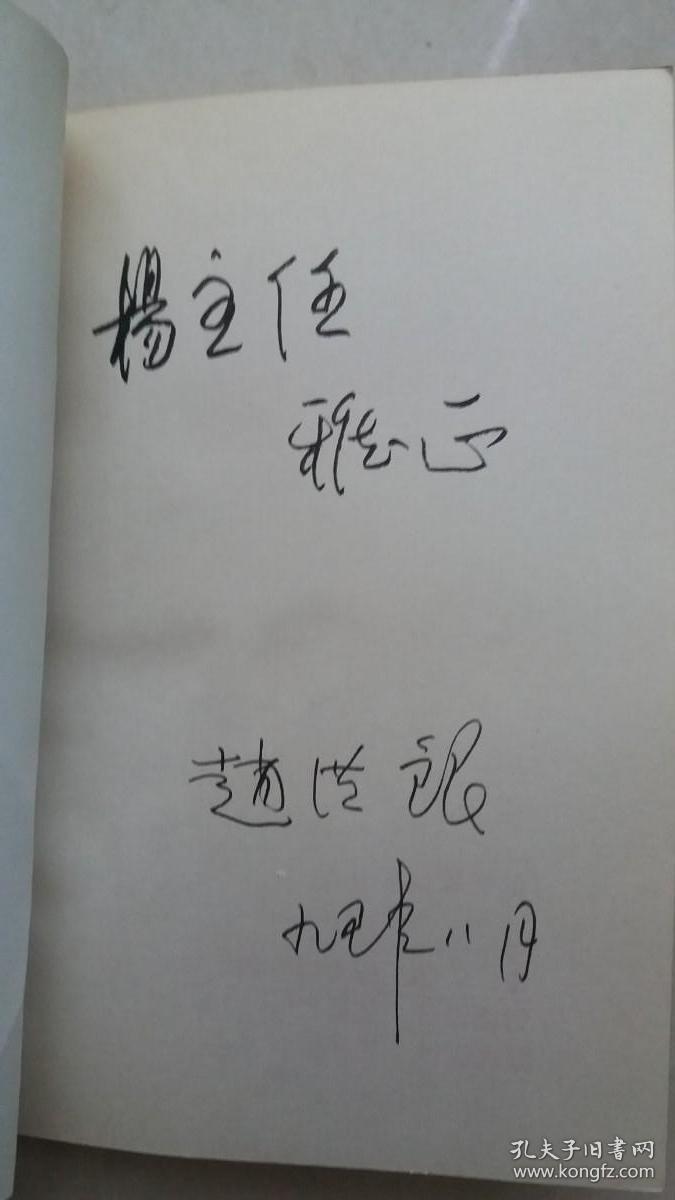 楊主任
雅正
趙洪銀
九五年八月
孔夫子旧书网
www.kongfz.com